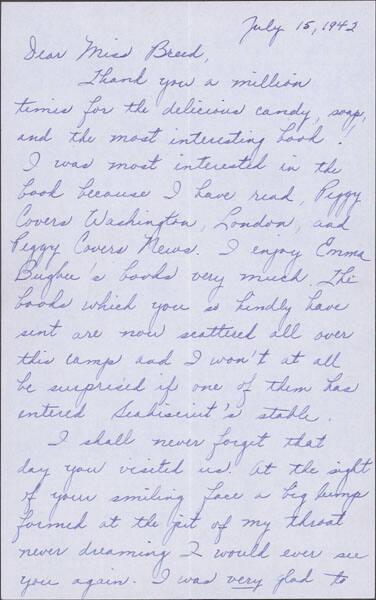 July 15, 1942
Dear Miss Breed,
Thank you a million
times for the delicious candy, soap,
and the most interesting book!
I was most interested in the
book because I have read, Peggy
Covers Washington, London, and
Peggy Covers News. I enjoy Emma
Bugbee's books very much. The
books which you so kindly have
sent are now scattered all over
this camp and I won't at all
be surprised if one of them has
entered Seabiscuit's stable.
I shall never forget that
day you visited us. At the sight
of your smiling face a big lump
formed at the pit of my throat
never dreaming I would ever see
you again. I was very glad to